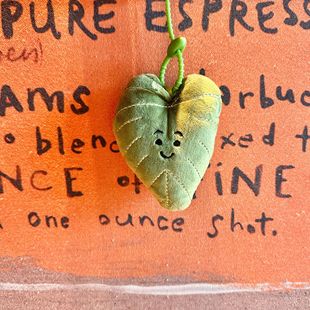 PURE ESPRESS
een)
ams arbuc
o blen xed t
NCE of INE
n one ounce shot.